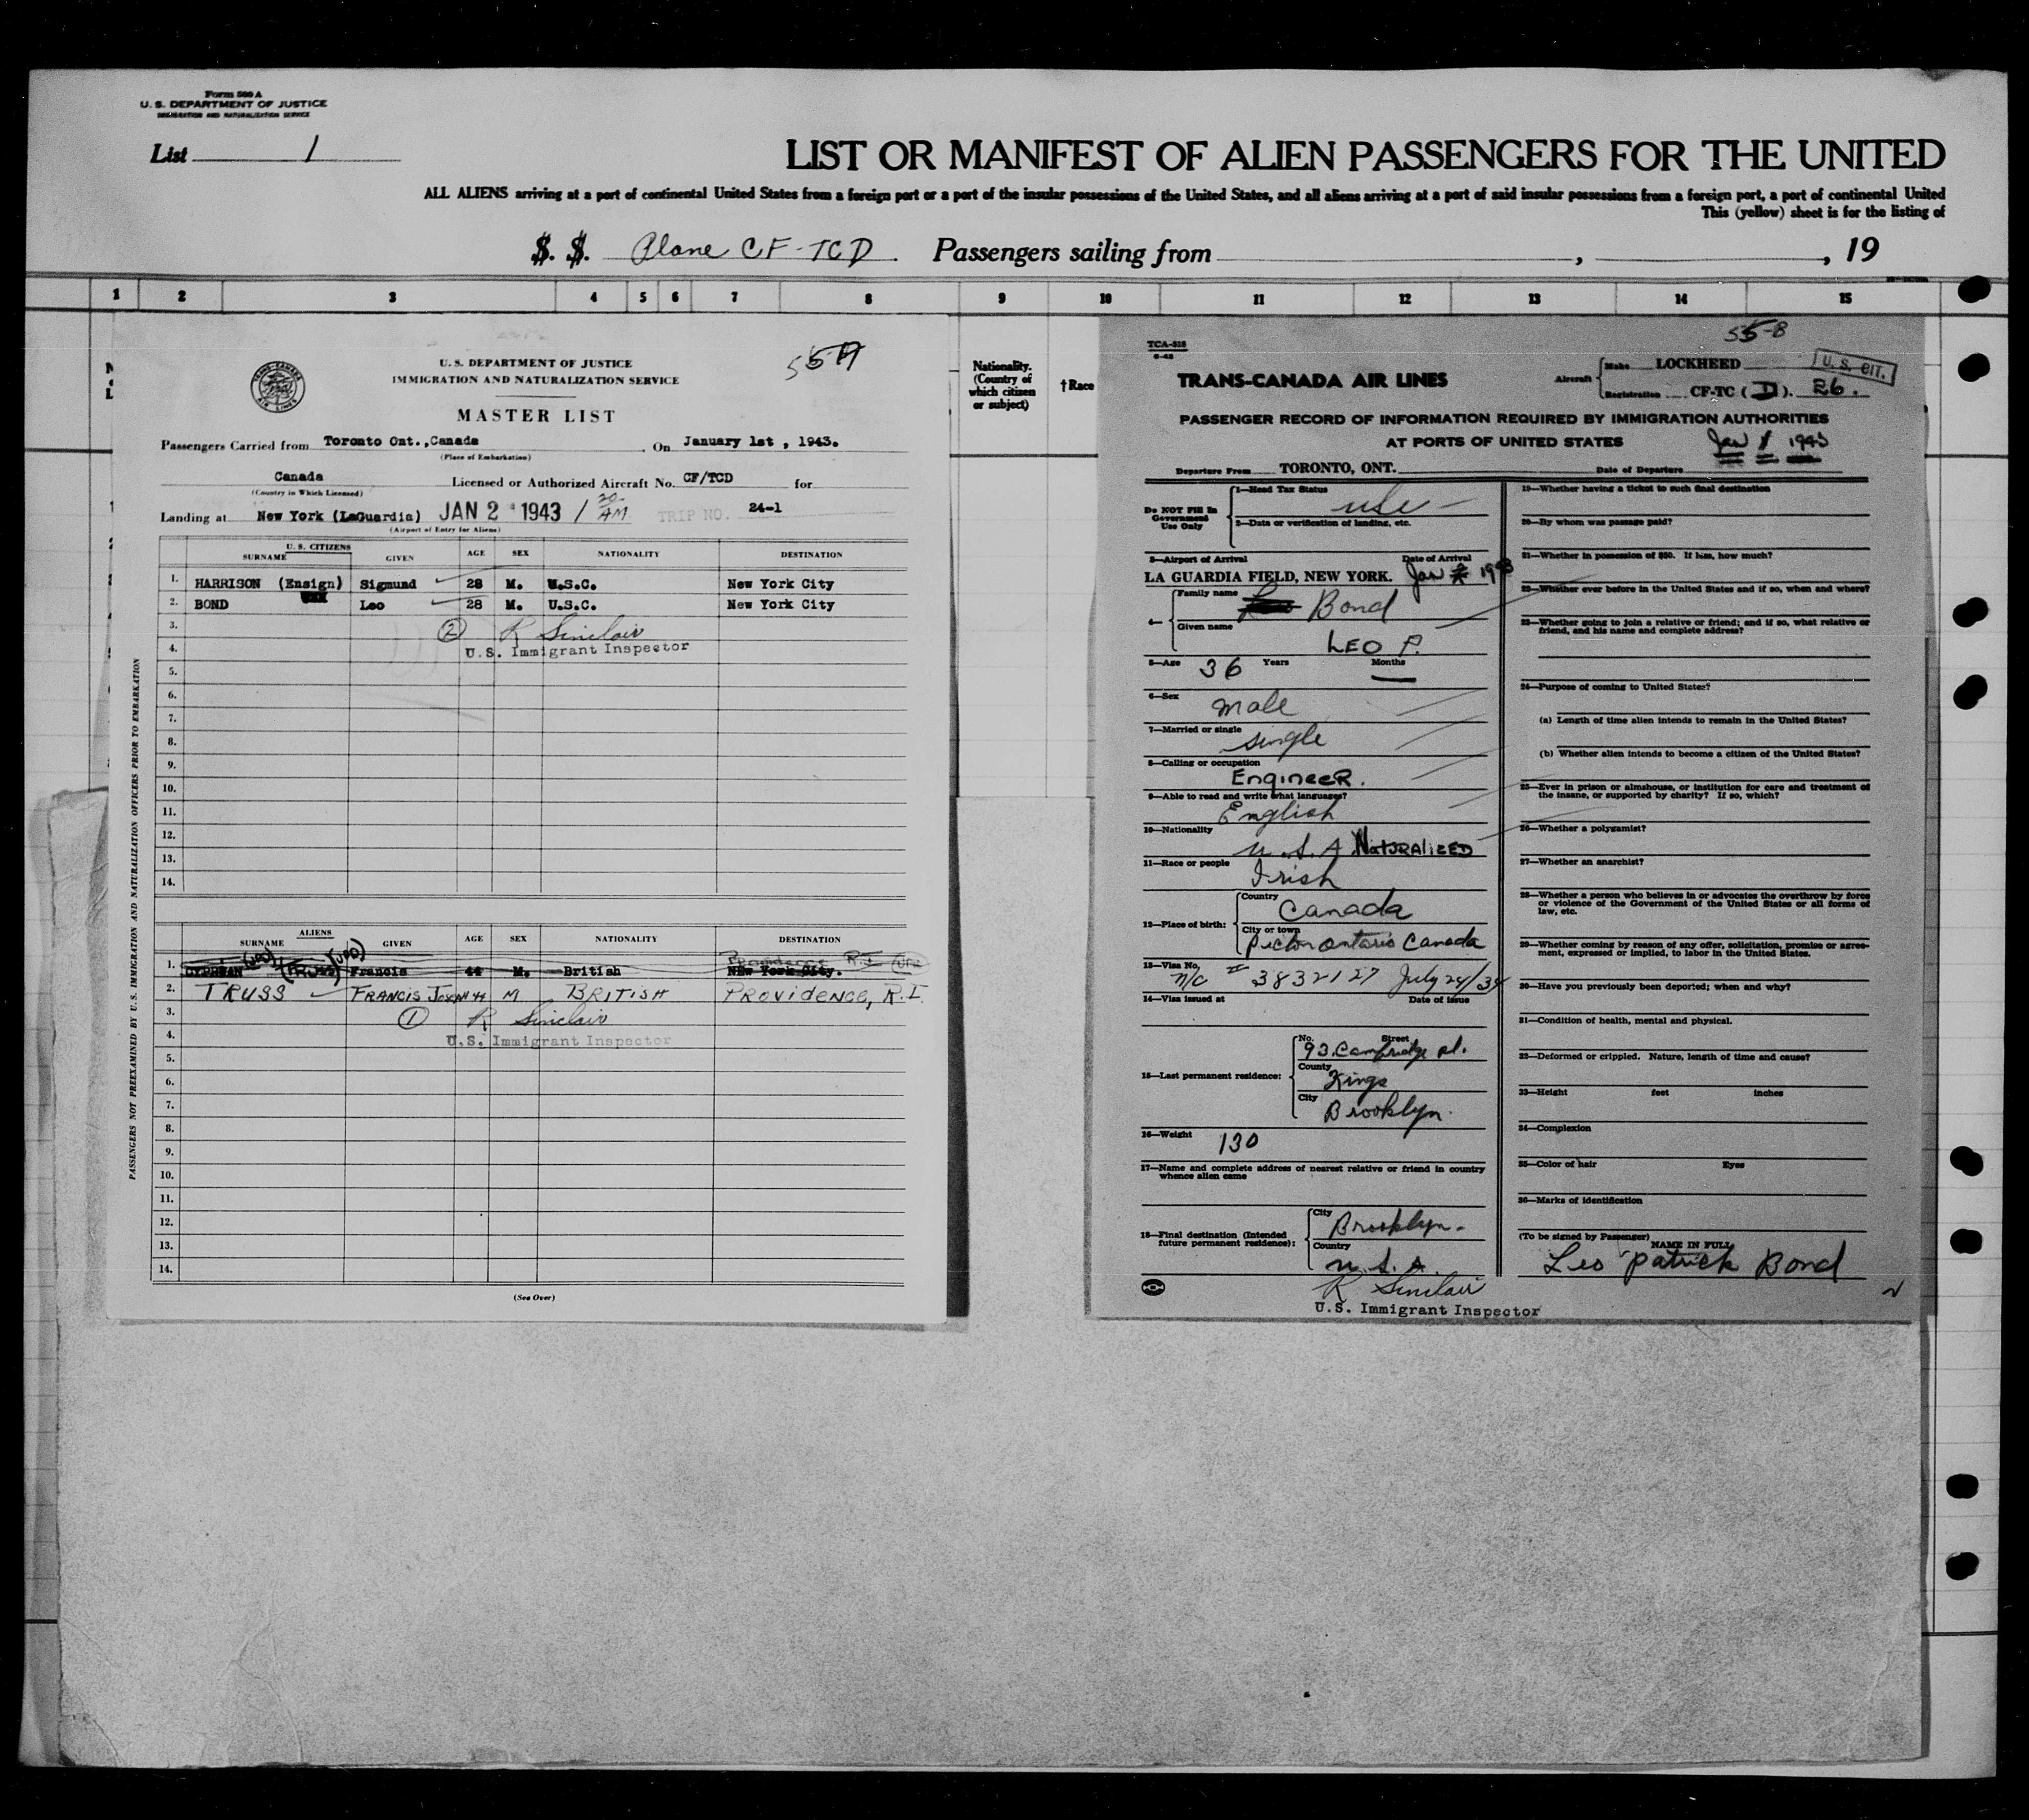 Form 500 A
U. S. DEPARTMENT OF JUSTICE
IMMIGRATION AND NATURALIZATION SERVICE
List 1
LIST OR MANIFEST OF ALIEN PASSENGERS FOR THE UNITED
ALL ALIENS arriving at a port of continental United States from a foreign port or a port of the insular possessions of the United States, and all aliens arriving at a port of said insular possessions from a foreign port, a port of continental United
This (yellow) sheet is for the listing of
S. S. Plane CF-TCD. Passengers sailing from , , 19
1 2 3 4 5 6 7 8 9 10 11 12 13 14 15
Nationality. (Country of which citizen or subject)
† Race
TRANS-CANADA AIR LINES
U. S. DEPARTMENT OF JUSTICE
IMMIGRATION AND NATURALIZATION SERVICE
MASTER LIST
Passengers Carried from Toronto Ont.,Canada On January 1st, 1943.
(Place of Embarkation)
Canada Licensed or Authorized Aircraft No. CF/TCD for
(Country in Which Licensed)
Landing at New York (LaGuardia) JAN 2 1943 / 20 AM TRIP NO. 24-1
(Airport of Entry for Aliens)
U. S. CITIZENS
SURNAME GIVEN AGE SEX NATIONALITY DESTINATION
1. HARRISON (Ensign) Sigmund 28 M. U.S.C. New York City
2. BOND Leo 28 M. U.S.C. New York City
3. (2) R Sinclair
4. U.S. Immigrant Inspector
5.
6.
7.
8.
9.
10.
11.
12.
13.
14.
ALIENS
SURNAME GIVEN AGE SEX NATIONALITY DESTINATION
1. Francis 44 M. British New York City.
2. TRUSS FRANCIS JOSEPH 44 M BRITISH PROVIDENCE, R.I.
3. (1) R Sinclair
4. U.S. Immigrant Inspector
5.
6.
7.
8.
9.
10.
11.
12.
13.
14.
(See Over)
PASSENGERS NOT PREEXAMINED BY U.S. IMMIGRATION AND NATURALIZATION OFFICERS PRIOR TO EMBARKATION
55-B
TCA-518
TRANS-CANADA AIR LINES
Aircraft Make LOCKHEED
Registration CF-TC (D). 26.
U.S. CIT.
PASSENGER RECORD OF INFORMATION REQUIRED BY IMMIGRATION AUTHORITIES
AT PORTS OF UNITED STATES
Jan 1 1943
Departure From TORONTO, ONT. Date of Departure
Do NOT Fill In Government Use Only
1—Head Tax Status
2—Data or verification of landing, etc.
3—Airport of Arrival Date of Arrival
LA GUARDIA FIELD, NEW YORK. Jan 1943
4— Family name Bond
Given name LEO P.
5—Age 36 Years Months —
6—Sex male
7—Married or single single
8—Calling or occupation EngineeR.
9—Able to read and write what languages? English
10—Nationality U.S.A NATURALIZED
11—Race or people Irish
12—Place of birth: Country Canada
City or town Picton Ontario Canada
13—Visa No. n/c # 3832127 July 24/34
14—Visa issued at Date of issue
15—Last permanent residence: No. Street 93 Cambridge pl.
County Kings
City Brooklyn.
16—Weight 130
17—Name and complete address of nearest relative or friend in country whence alien came
18—Final destination (Intended future permanent residence): City Brooklyn-
Country U.S.A.
R Sinclair
U.S. Immigrant Inspector
19—Whether having a ticket to such final destination
20—By whom was passage paid?
21—Whether in possession of $50. If less, how much?
22—Whether ever before in the United States and if so, when and where?
23—Whether going to join a relative or friend; and if so, what relative or friend, and his name and complete address?
24—Purpose of coming to United States?
(a) Length of time alien intends to remain in the United States?
(b) Whether alien intends to become a citizen of the United States?
25—Ever in prison or almshouse, or institution for care and treatment of the insane, or supported by charity? If so, which?
26—Whether a polygamist?
27—Whether an anarchist?
28—Whether a person who believes in or advocates the overthrow by force or violence of the Government of the United States or all forms of law, etc.
29—Whether coming by reason of any offer, solicitation, promise or agreement, expressed or implied, to labor in the United States.
30—Have you previously been deported; when and why?
31—Condition of health, mental and physical.
32—Deformed or crippled. Nature, length of time and cause?
33—Height feet inches
34—Complexion
35—Color of hair Eyes
36—Marks of identification
(To be signed by Passenger)
NAME IN FULL
Leo Patrick Bond